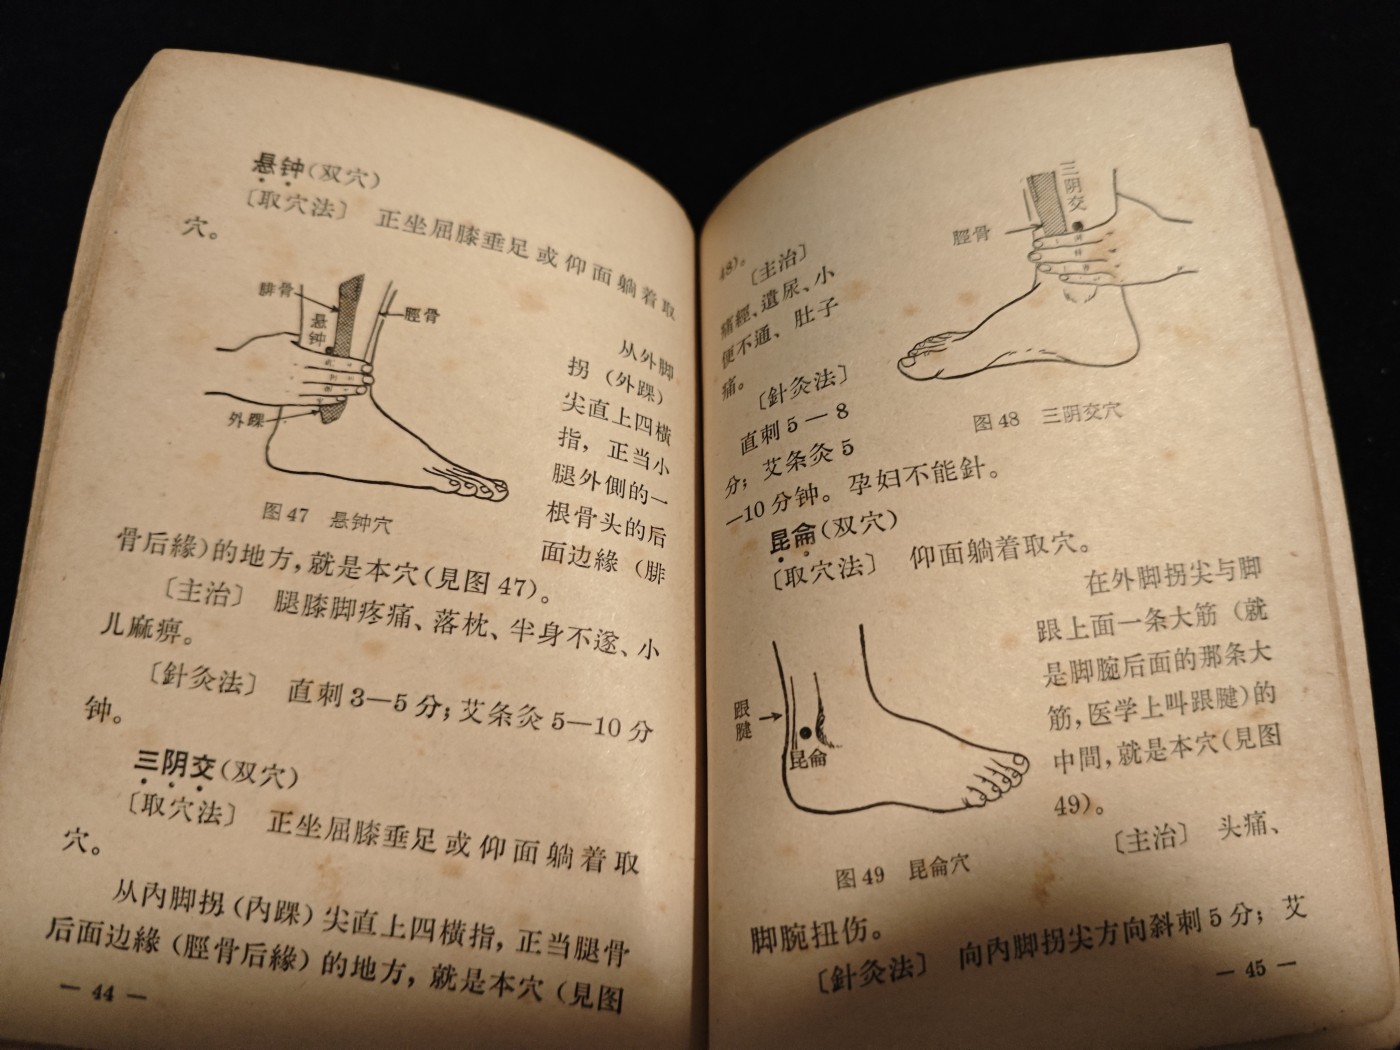 悬钟(双穴)
〔取穴法〕 正坐屈膝垂足或仰面躺着取
穴。
腓骨
悬
钟
脛骨
外踝
图47 悬钟穴
从外脚
拐（外踝）
尖直上四横
指，正当小
腿外側的一
根骨头的后
面边緣（腓
骨后緣)的地方,就是本穴(見图47)。
〔主治〕 腿膝脚疼痛、落枕、半身不遂、小
儿麻痹。
〔針灸法〕 直刺3—5分;艾条灸5—10分
钟。
三阴交(双穴)
〔取穴法〕 正坐屈膝垂足或仰面躺着取
穴。
从內脚拐(內踝)尖直上四橫指，正当腿骨
后面边緣（脛骨后緣）的地方，就是本穴（見图
— 44 —
三阴交
脛骨
图48 三阴交穴
48)。
〔主治〕
痛經、遺尿、小
便不通、肚子
痛。
〔針灸法〕
直刺5—8
分；艾条灸5
—10分钟。孕妇不能針。
昆侖(双穴)
〔取穴法〕 仰面躺着取穴。
跟
腱
昆侖
图49 昆侖穴
在外脚拐尖与脚
跟上面一条大筋（就
是脚腕后面的那条大
筋,医学上叫跟腱)的
中間,就是本穴(見图
49)。
〔主治〕 头痛、
脚腕扭伤。
〔針灸法〕 向內脚拐尖方向斜刺5分；艾
— 45 —